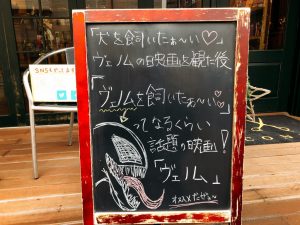 「犬を飼いたぁ～い♡」
ヴェノムの映画を観た後
「ヴェノムを飼いたぁ～い♡」
ってなるくらい
話題の映画!
「ヴェノム」
オススメだぜぇ～